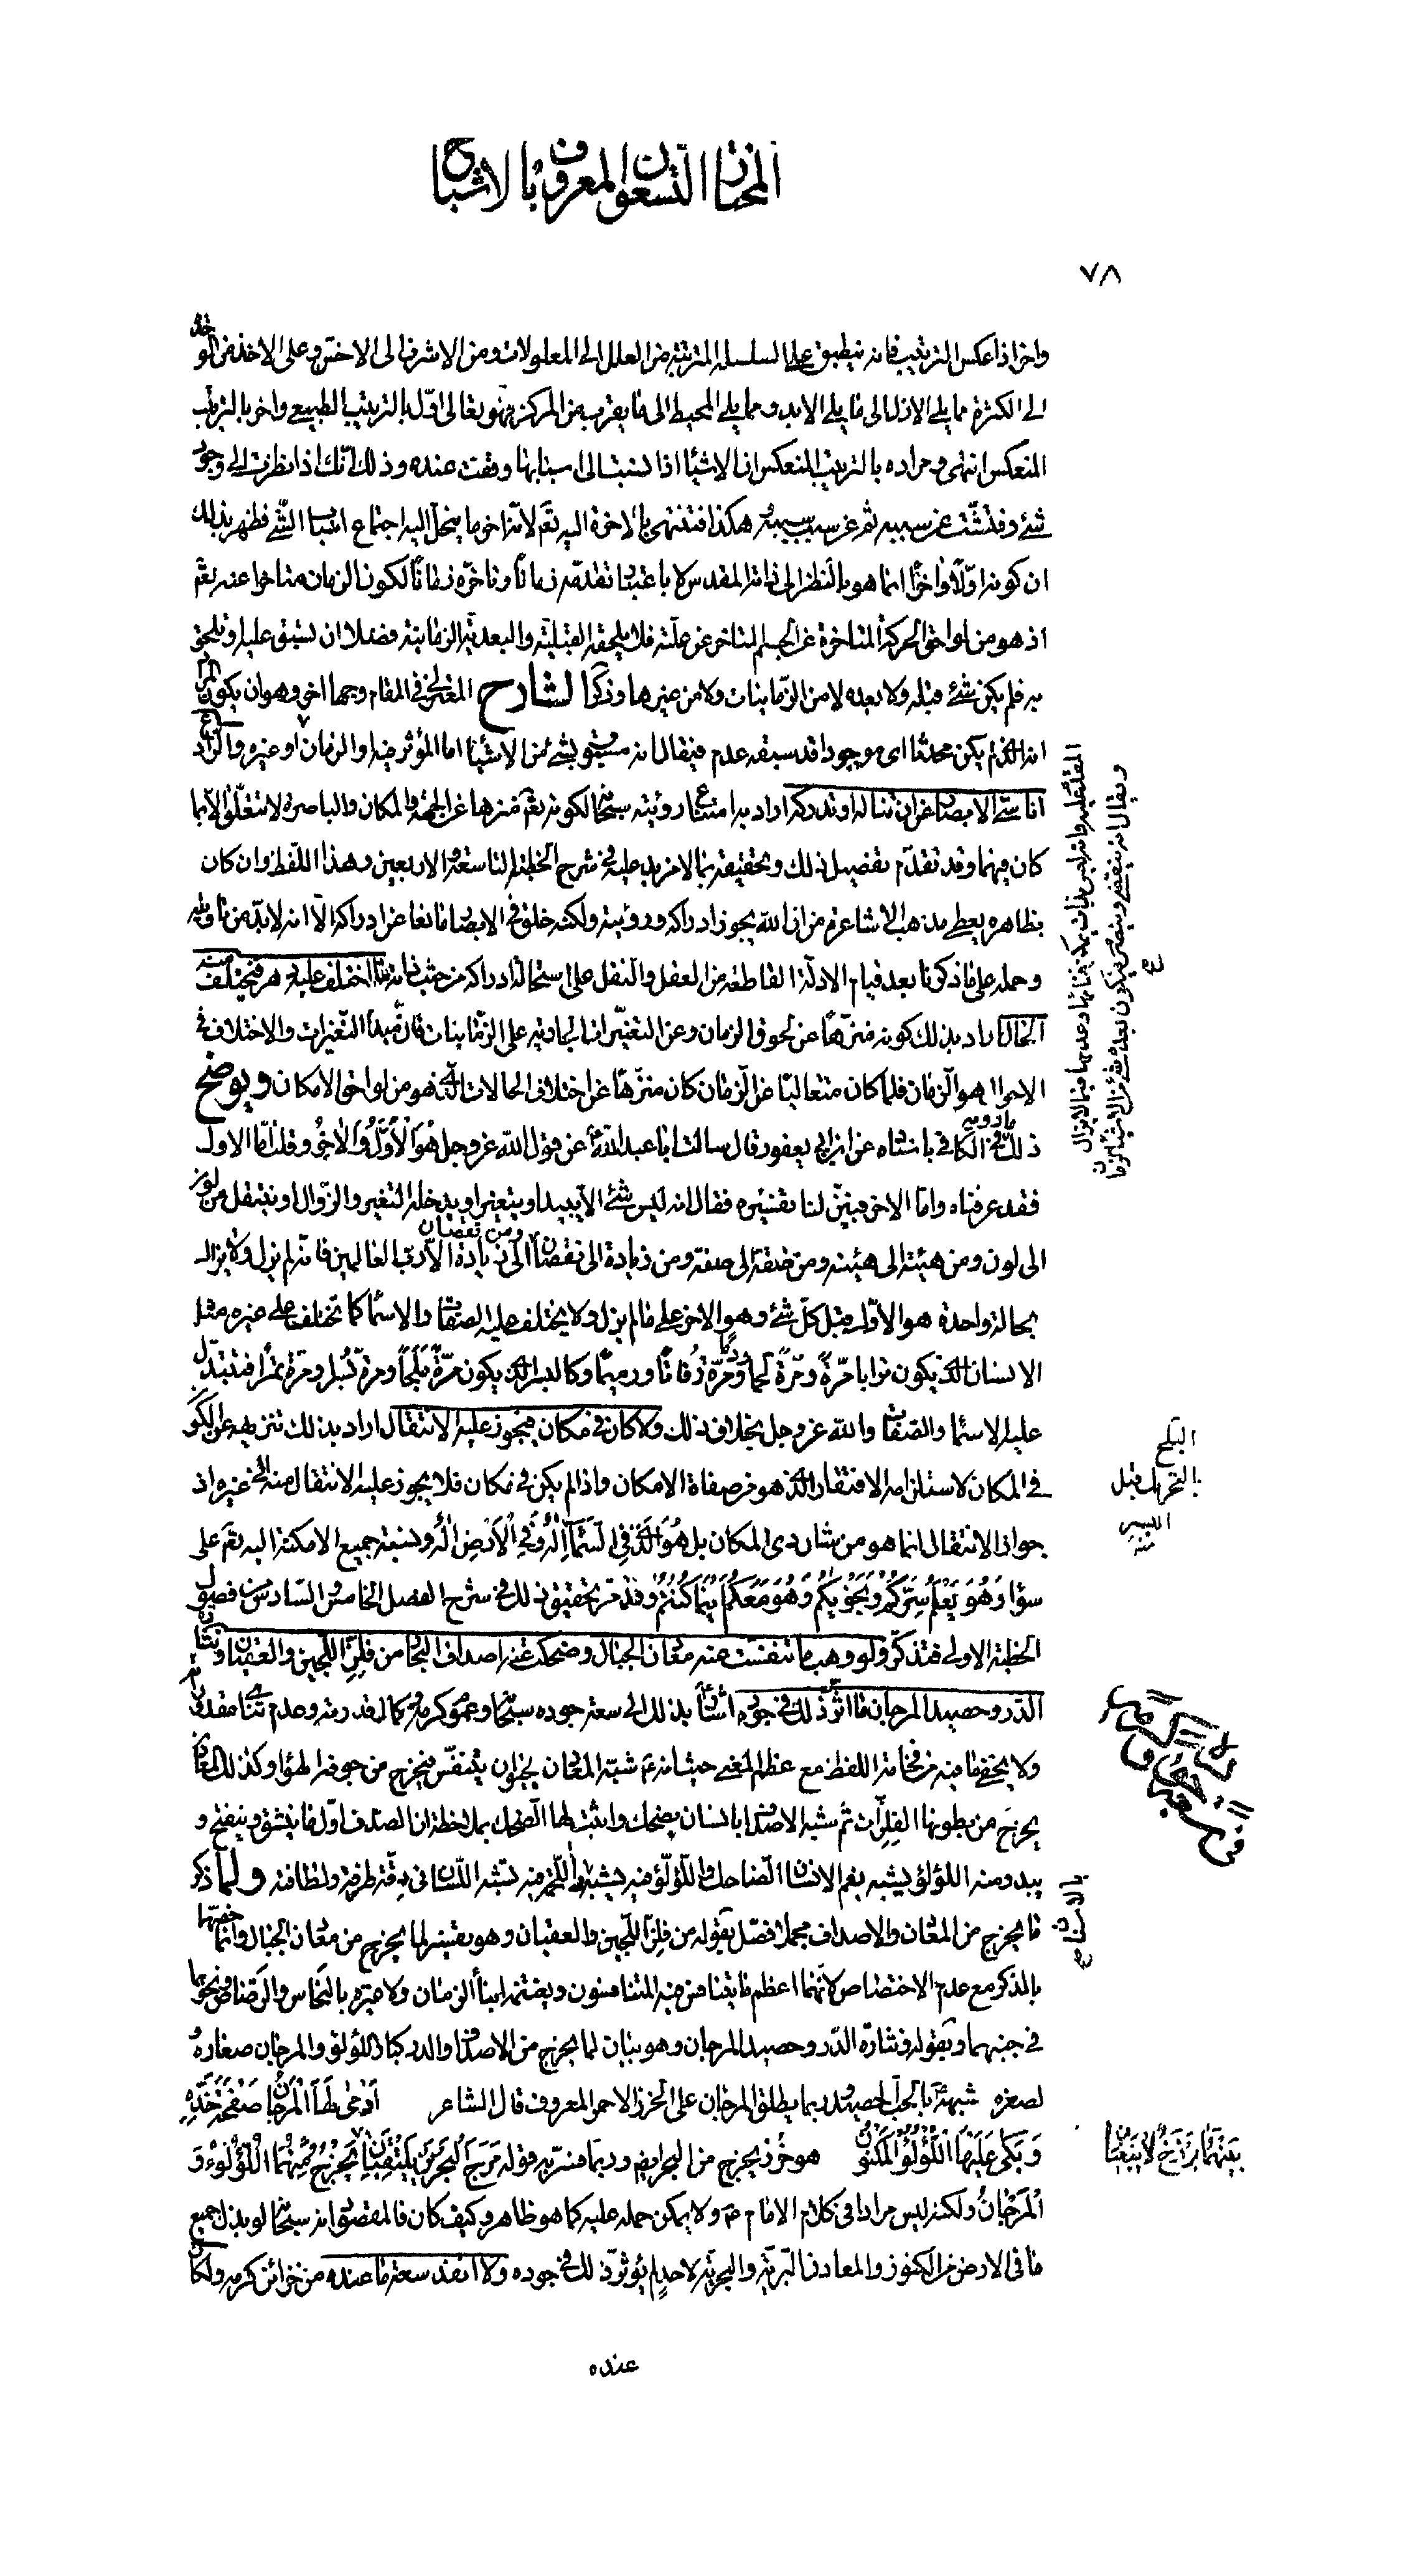 المختار التسعون المعروف بالاشباح
٧٨
واخرا اذا عكس الترتيب فانه ينطبق على السلسلة المترتبة من العلل الى المعلولات ومن الاشرف الى الاخس وعلى الاخذ من الوحدة
الى الكثرة مما يلي الازل الى ما يلي الابد ومما يلي المحيط الى ما يقرب من المركز فهو تعالى اوّل بالترتيب الطبيعي واخر بالترتيب
المنعكس انتهى ومراده بالترتيب المنعكس ان الاشياء اذا نسبت الى اسبابها وقفت عنده وذلك انّك اذا نظرت الى وجود
شئ وفتّشت عن سببه ثم عن سبب سببه وهكذا فتنتهى بالاخرة اليه تعم لانّه اخر ما ينحلّ اليه اجتماع اسباب الشّئ فظهر بذلك
ان كونه اوّلا واخرًا انما هو بالنظر الى ذاته المقدس لا باعتبار تقدمّه زمانًا وتاخّره زمانًا لكون الزمان متاخرا عنه تعم
اذ هو من لواحق الحركة المتاخرة عن الجسم المتاخر عن علّته فلا يلحقه القبليّة والبعديّة الزمانية فضلا ان تسبق عليه او تلحق
به فلم يكن شئ قبله ولا بعده لا من الزّمانيات ولا من غيرها وذكر الشارح المعتزلى في المقام وجها اخر وهو ان يكون المراد
انه الذى لم يكن محدثا اى موجودا قد سبقه عدم فيقال انه مسبوق بشئ من الاشياء اما المؤثر فيه او الزمان او غيره والرّادع
اناسىّ الابصار عن ان تناله او تدركه اراد به امتناع رؤيته سبحانه لكونه تعم منزها عن الجهة والمكان والباصرة لا تتعلّق الّا بما
كان فيهما وقد تقدّم تفصيل ذلك وتحقيقه بما لا مزيد عليه في شرح الخطبة التاسعة والاربعين وهذا اللّفظ وان كان
بظاهره يعطى مذهب الاشاعرة من ان الله يجوز ادراكه ورؤيته ولكنه خلق في الابصار مانعا عن ادراكه الّا انه لابدّ من تاويله
وحمله على ما ذكرنا بعد قيام الادلّة القاطعة من العقل والنقل على استحالة ادراكه من حيث ذاته ما اختلف عليه دهر فيختلف منه
الحال اراد بذلك كونه منزّهًا عن لحوق الزمان وعن التغيّرات الجارية على الزّمانيات فان مبدأ التّغيرات والاختلاف في
الاحوال هو الزمان فلما كان متعاليًا عن الزمان كان منزّهًا عن اختلاف الحالات الذى هو من لواحق الامكان ويوضح
ذلك ما رويه في الكافى باسناده عن ابن ابى يعفور قال سالت ابا عبد اللهع عن قول الله عز وجل هُوَ الْأَوَّلُ وَالْاخِرُ وقلت امّا الاول
فقد عرفناه وامّا الاخر فبيّن لنا تفسيره فقال انه ليس شئ الّا يبيد او يتغير او يدخله التغير والزّوال او ينتقل من لون
الى لون ومن هيئة الى هيئة ومن صفة الى صفة ومن زيادة الى نقصان ومن نقصان الى زيادة الّا ربّ العالمين فانّه لم يزل ولا يزال
بحالة واحدة هو الاوّل قبل كلّ شئ وهو الاخر على ما لم يزل ولا يختلف عليه الصّفات والاسماء كما تختلف على غيره مثل
الانسان الذى يكون ترابا مرّةً ومرّةً لحمًا ودمًا ومرّة رُفاتًا ورميمًا وكالبسر الذى يكون مرّةً بَلَحًا ومرّة بُسْرا ومرّة تمرًا فتتبدّل
عليه الاسماء والصّفات والله عز وجل بخلاف ذلك ولا كان في مكان فيجوز عليه الانتقال اراد بذلك تنزيهه عن الكون
في المكان لاستلزامه الافتقار الذى هو من صفات الامكان واذا لم يكن في مكان فلا يجوز عليه الانتقال منه الى غيره اذ
جواز الانتقال انما هو من شان ذى المكان بل هُوَ الَّذى فِى السَّمآءِ اِلٰهٌ وَفِى الْاَرْضِ اِلٰهٌ ونسبة جميع الامكنة اليه تعم على
سواء وَهُوَ يَعْلَمُ سِرَّكُمْ وَنَجْوٰيكُمْ وَهُوَ مَعَكُمْ اَيْنَمٰا كُنْتُمْ وقد مرّ تحقيق ذلك في شرح الفصل الخامس والسّادس من فصول
الخطبة الاولى فتذكّر ولو وهب ما تنفّست عنه معادن الجبال وضحكت عنه اصداف البحار من فلزّ اللّجين والعقيان ونثارة
الدّر وحصيد المرجان ما اثّر ذلك في جوده اشار بذلك الى سعة جوده سبحانه وعموم كرمه وكمال قدرته وعدم تناهى مقدوراته
ولا يخفى ما فيه من فخامة اللفظ مع عظم المعنى حيث انه ع شبّه المعادن بحيوان يتنفّس فيخرج من جوفه الهواء وكذلك المعادن
يخرج من بطونها الفلزّات ثم شبه الاصداف بانسان يضحك واثبت لها الضحك بملاحظة ان الصّدف اوّل ما ينشق وينفتح و
يبدو منه اللؤلؤ يشبه بفم الانسان الضاحك واللّؤلؤ فيه يشبه واللّحمة فيه تشبه اللّسان في رقّة طرفه ولطافته ولمّا ذكر
ما يخرج من المعادن والاصداف مجملا فصّل بقوله من فلزّ اللّجين والعقيان وهو تفسير لما يخرج من معادن الجبال وانّما خصّهما
بالذكر مع عدم الاختصاص لانّهما اعظم ما يتنافس فيه المتنافسون ويغتنمه ابناء الزمان ولا عبرة بالنّحاس والرّصاص ونحوهما
في جنبهما وبقوله ونثارة الدّر وحصيد المرجان وهو بيان لما يخرج من الاصداف والدر كبار اللؤلؤ والمرجان صغاره و
لصغره شبهه بالحبّ الحصيد وربما يطلق المرجان على الخرز الاحمر المعروف قال الشاعر اَدْمٰى لَهَا الْمَرْجٰانُ صَفْحَةَ خَدِّهِ
وَبَكٰى عَلَيْهَا اللُّؤْلُؤُ الْمَكْنُونُ هو خرز يخرج من البحر ايضا وربّما فسّر به قوله مَرَجَ الْبَحْرَيْنِ يَلْتَقِيٰانِ يَخْرُجُ مِنْهُمَا اللُّؤْلُؤُ وَ
الْمَرْجٰانُ ولكنه ليس مرادا في كلام الامام ع ولا يمكن حمله عليه كما هو ظاهر وكيف كان فالمقصود انه سبحانه لو بذل جميع
ما في الارض من الكنوز والمعادن البّرية والبحريّة لاحد لم يؤثر ذلك في جوده ولا انفد سعة ما عنده من خزائن كرمه ولكان
عنده
ويقال انه ينقضى وينصرم فيكون بعده شئ من الاشياء الزمان
البلح
بالتحريك قبل
البسر
منه
بالاسنان
بَيْنَهُمٰا بَرْزَخٌ لٰا يَبْغِيٰانِ